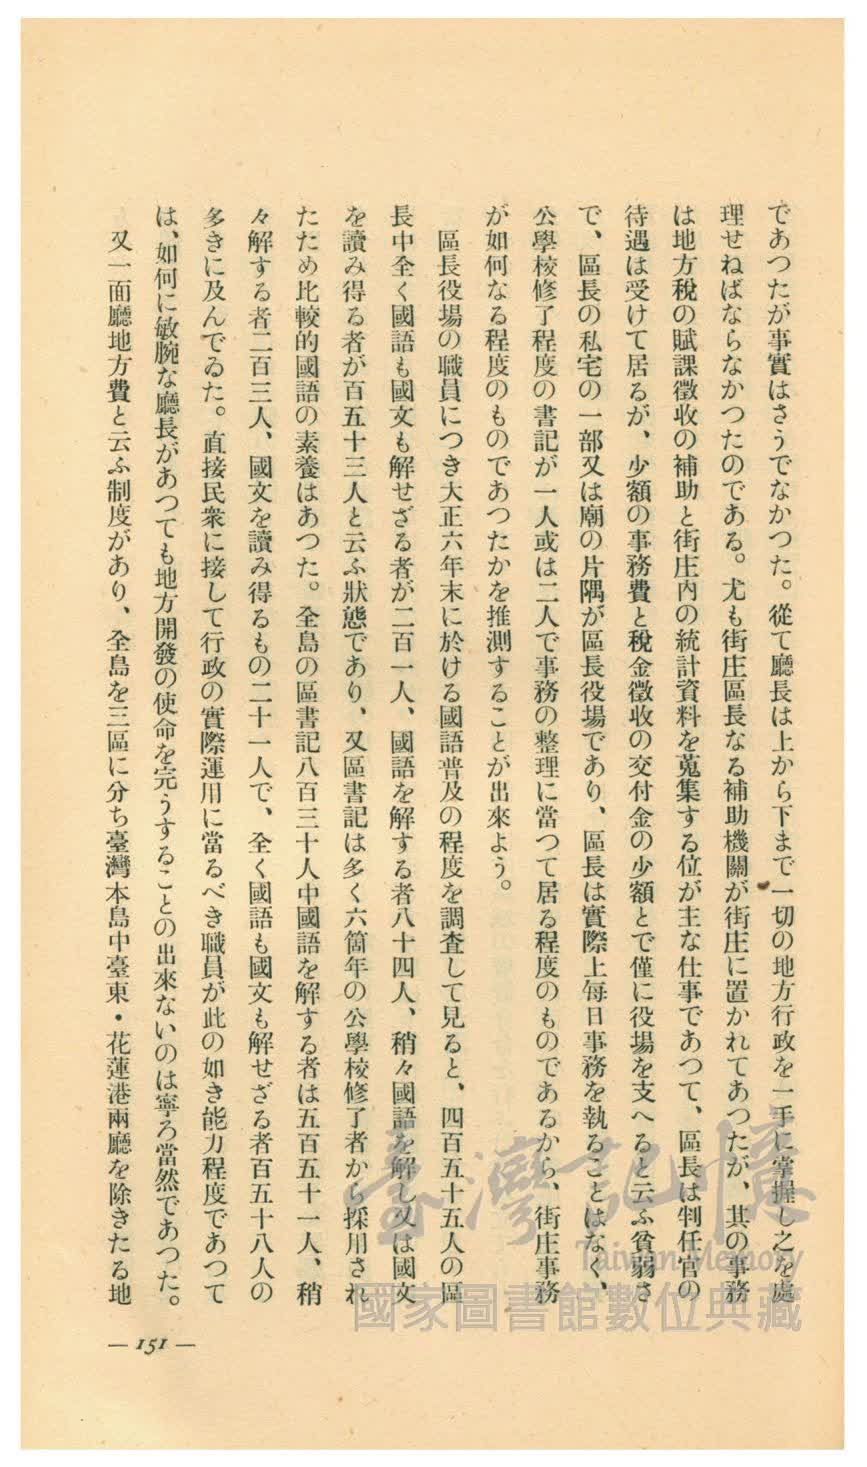 であつたが事實はさうでなかつた。從て廳長は上から下まで一切の地方行政を一手に掌握し之を處
理せねばならなかつたのである。尤も街庄區長なる補助機關が街庄に置かれてあつたが、其の事務
は地方稅の賦課徵收の補助と街庄內の統計資料を蒐集する位が主な仕事であつて、區長は判任官の
待遇は受けて居るが、少額の事務費と稅金徵收の交付金の少額とで僅に役場を支へると云ふ貧弱さ
で、區長の私宅の一部又は廟の片隅が區長役場であり、區長は實際上每日事務を執ることはなく、
公學校修了程度の書記が一人或は二人で事務の整理に當つて居る程度のものであるから、街庄事務
が如何なる程度のものであつたかを推測することが出來よう。
區長役場の職員につき大正六年末に於ける國語普及の程度を調査して見ると、四百五十五人の區
長中全く國語も國文も解せざる者が二百一人、國語を解する者八十四人、稍々國語を解し又は國文
を讀み得る者が百五十三人と云ふ狀態であり、又區書記は多く六箇年の公學校修了者から採用され
たため比較的國語の素養はあつた。全島の區書記八百三十人中國語を解する者は五百五十一人、稍
々解する者二百三人、國文を讀み得るもの二十一人で、全く國語も國文も解せざる者百五十八人の
多きに及んでゐた。直接民衆に接して行政の實際運用に當るべき職員が此の如き能力程度であつて
は、如何に敏腕な廳長があつても地方開發の使命を完うすることの出來ないのは寧ろ當然であつた。
又一面廳地方費と云ふ制度があり、全島を三區に分ち臺灣本島中臺東・花蓮港兩廳を除きたる地
— 151 —
臺灣記憶
Taiwan Memory
國家圖書館數位典藏